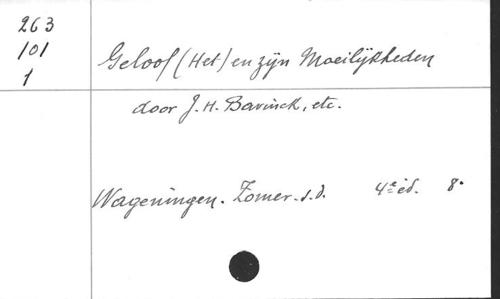 263
101
1
Geloof (Het) en zijn Moeilijkheden
door J. H. Bavinck, etc.
Wageningen. Zomer. s.d. 4e éd. 8°